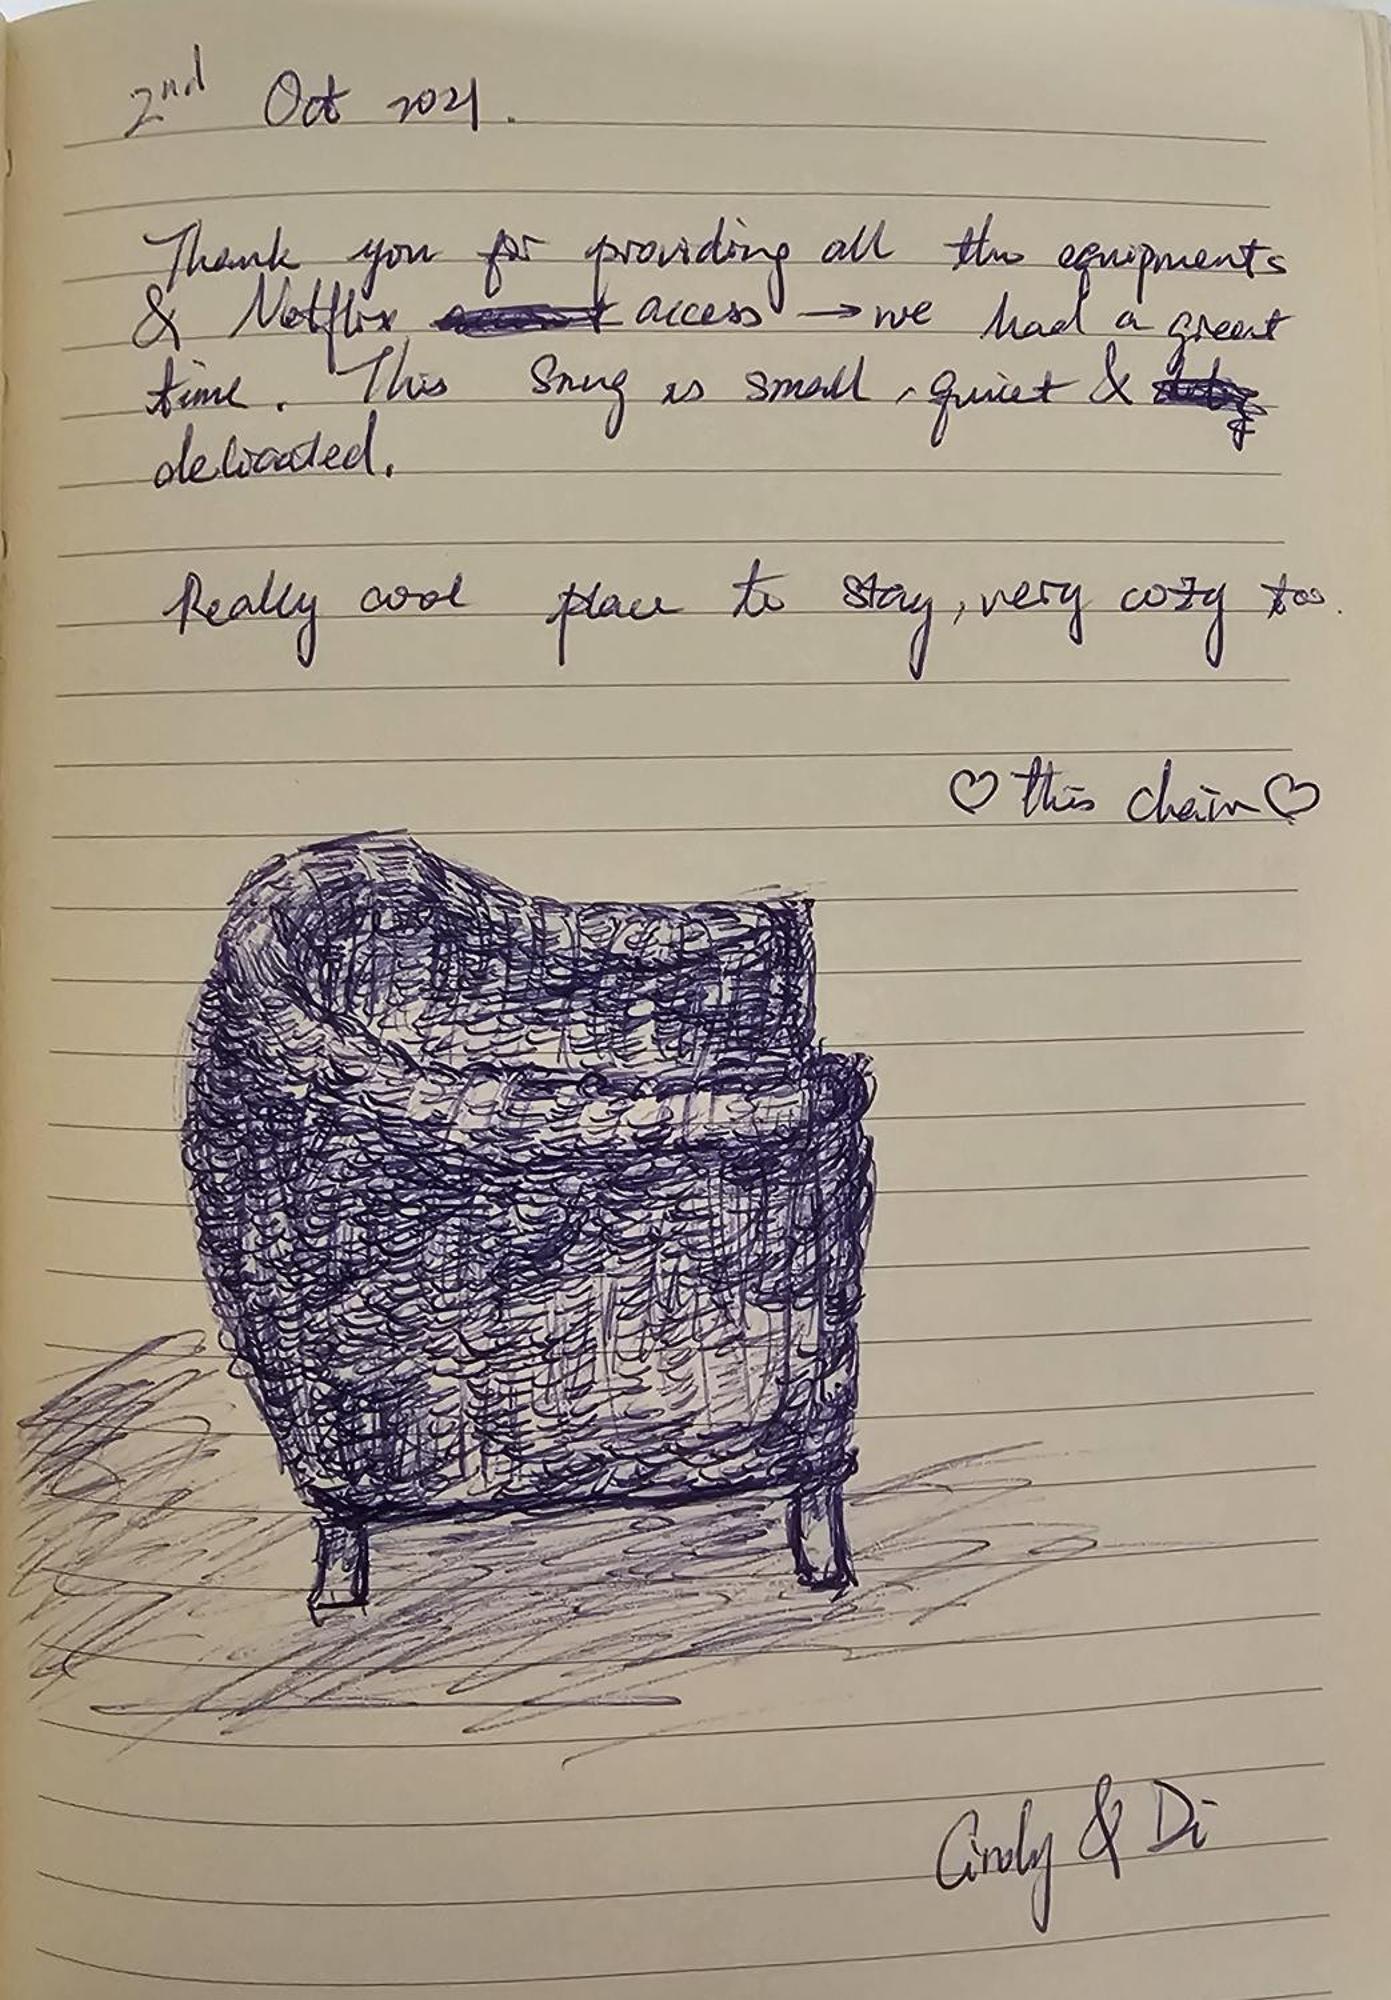 2nd Oct 2021.
Thank you for providing all the equipments
& Netflix access → we had a great
time. This Snug is small, quiet &
delicated.
Really cool place to stay, very cozy too.
♡ this chair ♡
Cindy & Di